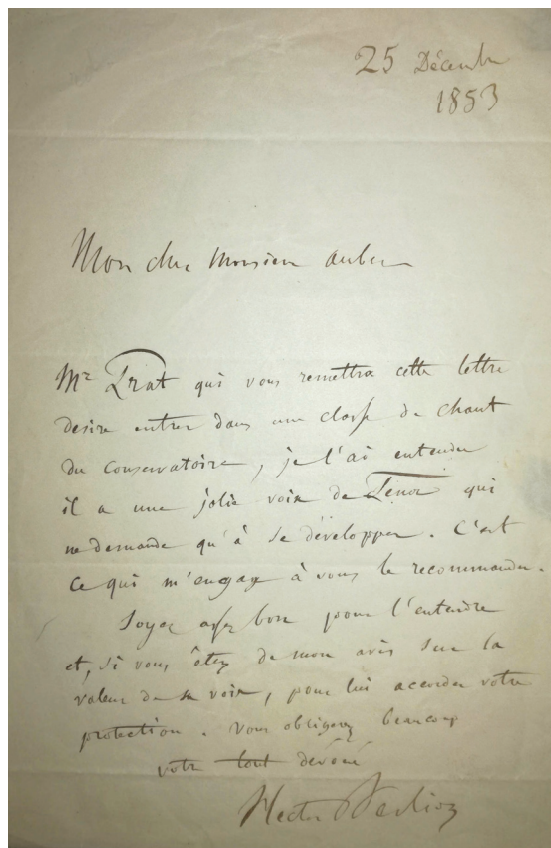 25 Décembre
1853
Mon cher Monsieur Auber
Mr Prat qui vous remettra cette lettre
desire entrer dans une classe de chant
du Conservatoire, je l'ai entendu
il a une jolie voix de Ténor qui
ne demande qu'à se développer. C'est
ce qui m'engage à vous le recommander.
Soyez assez bon pour l'entendre
et, si vous êtes de mon avis sur la
valeur de sa voix, pour lui accorder votre
protection. Vous obligerez beaucoup
votre tout dévoué
Hector Berlioz